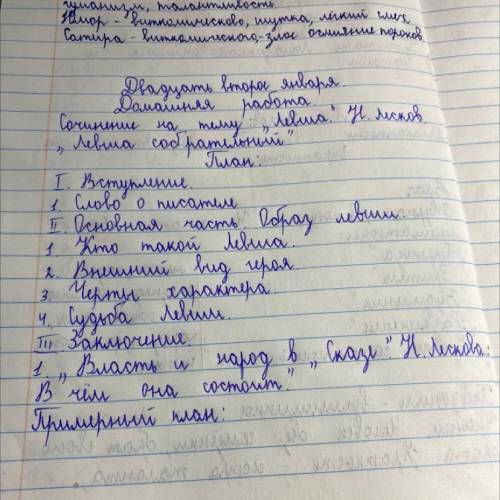 гуманизм, талантливость.
Юмор - вид комического, шутка, лёгкий смех
Сатира - вид комического, - злое осмеяние пороков.
Двадцать второе января.
Домашняя работа.
Сочинение на тему: „Левша." Н. Лесков.
„Левша собрательный"
План:
I. Вступление.
1. Слово о писателе
II. Основная часть. Образ левши.
1. Кто такой Левша.
2. Внешний вид героя.
3. Черты характера
4. Судьба Левши.
III Заключение
1. „Власть и народ в „Сказе" Н. Лескова:
В чём она состоит."
Примерный план: